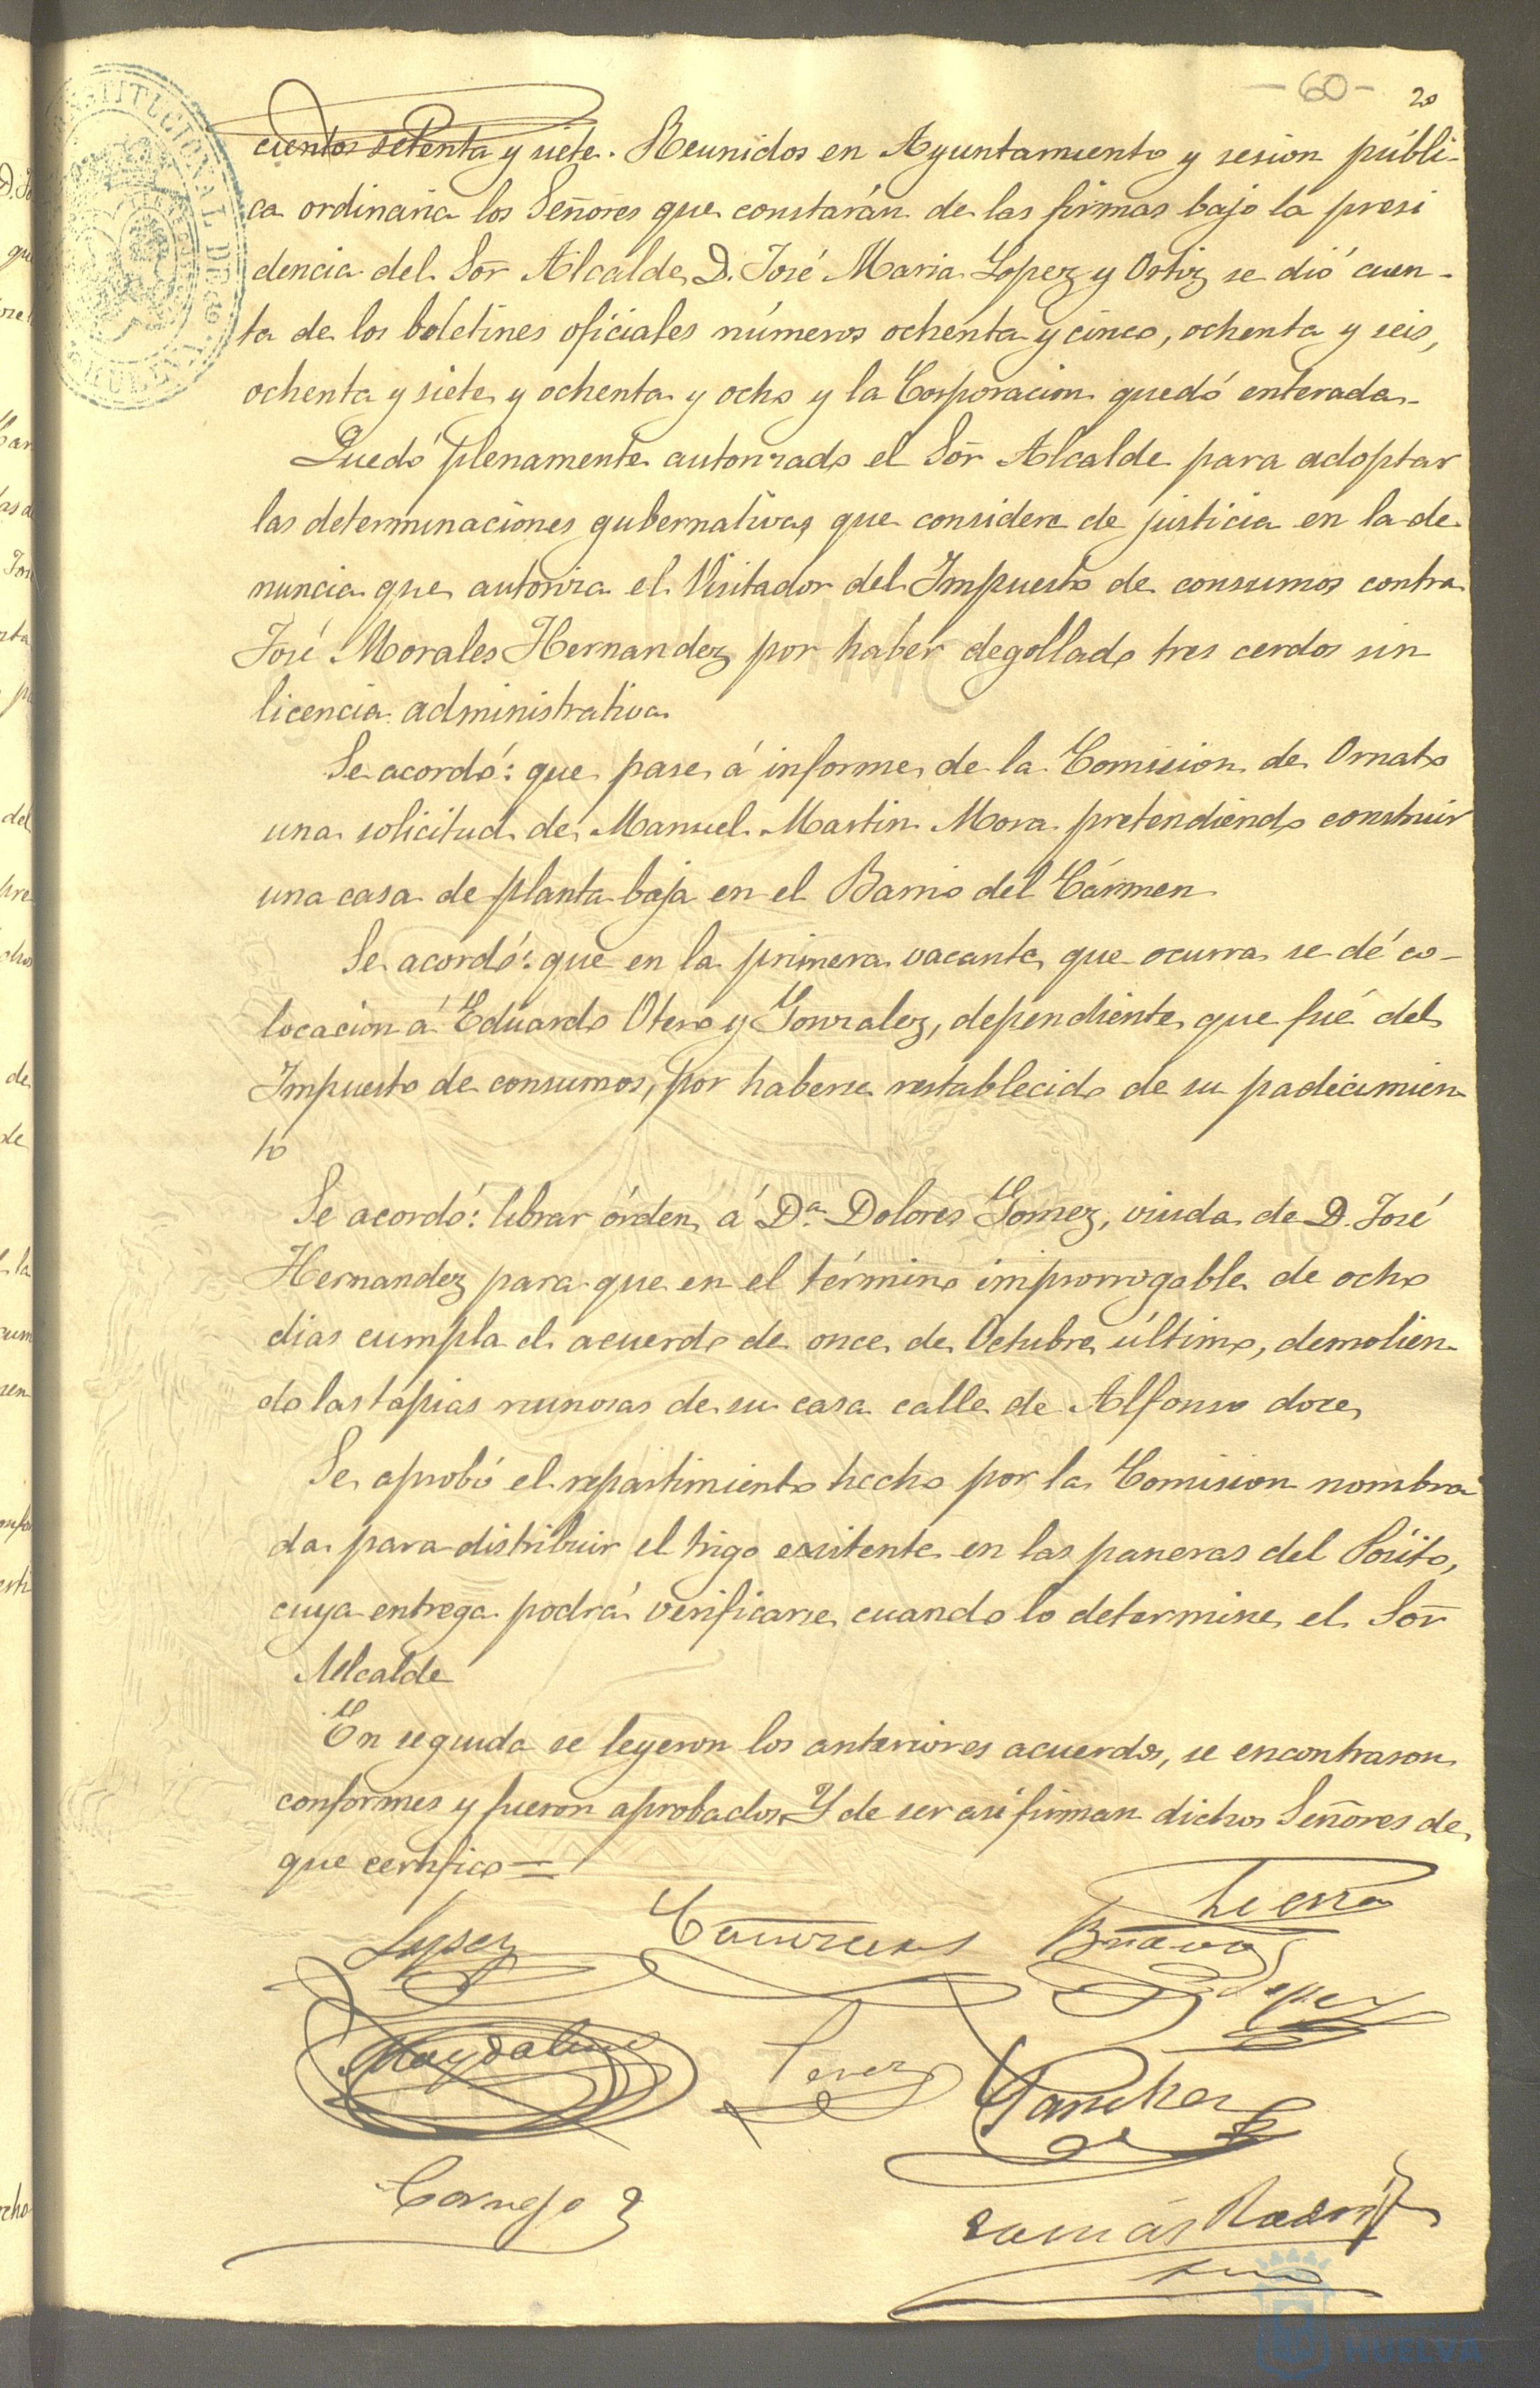 -60-
20
cientos setenta y siete. Reunidos en Ayuntamiento y sesion públi-
ca ordinaria los Señores que constarán de las firmas bajo la presi
dencia del Sor Alcalde, D. José Maria Lopez y Ortiz se dió cuen-
ta de los boletines oficiales números ochenta y cinco, ochenta y seis,
ochenta y siete y ochenta y ocho y la Corporacion quedó enterada.
Quedó plenamente autorizado el Sor Alcalde para adoptar
las determinaciones gubernativas que considere de justicia en la de
nuncia que autoriza el Visitador del Impuesto de consumos contra
José Morales Hernandez por haber degollado tres cerdos sin
licencia administrativa
Se acordó: que pase á informe de la Comision de Ornato
una solicitud de Manuel Martin Mora pretendiendo construir
una casa de planta baja en el Barrio del Cármen
Se acordó: que en la primera vacante que ocurra se dé co-
locacion á Eduardo Otero y Gonzalez, dependiente que fué del
Impuesto de consumos, por haberse restablecido de su padecimien
to
Se acordó: librar órden á Da. Dolores Gomez, viuda de D. José
Hernandez para que en el término improrrogable de ocho
dias cumpla el acuerdo de once de Octubre último, demolien-
do las tapias ruinosas de su casa calle de Alfonso doce
Se aprobó el repartimiento hecho por la Comision nombra
da para distribuir el trigo existente en las paneras del Pósito,
cuya entrega podrá verificarse cuando lo determine el Sor
Alcalde
En seguida se leyeron los anteriores acuerdos, se encontraron
conformes y fueron aprobados. Y de ser asi firman dichos Señores de
que certifico=
Lopez
Bravo
Tierra
Lopez
Magdalena
Perez
Sanchez
Cornejo
Tomás
HUELVA